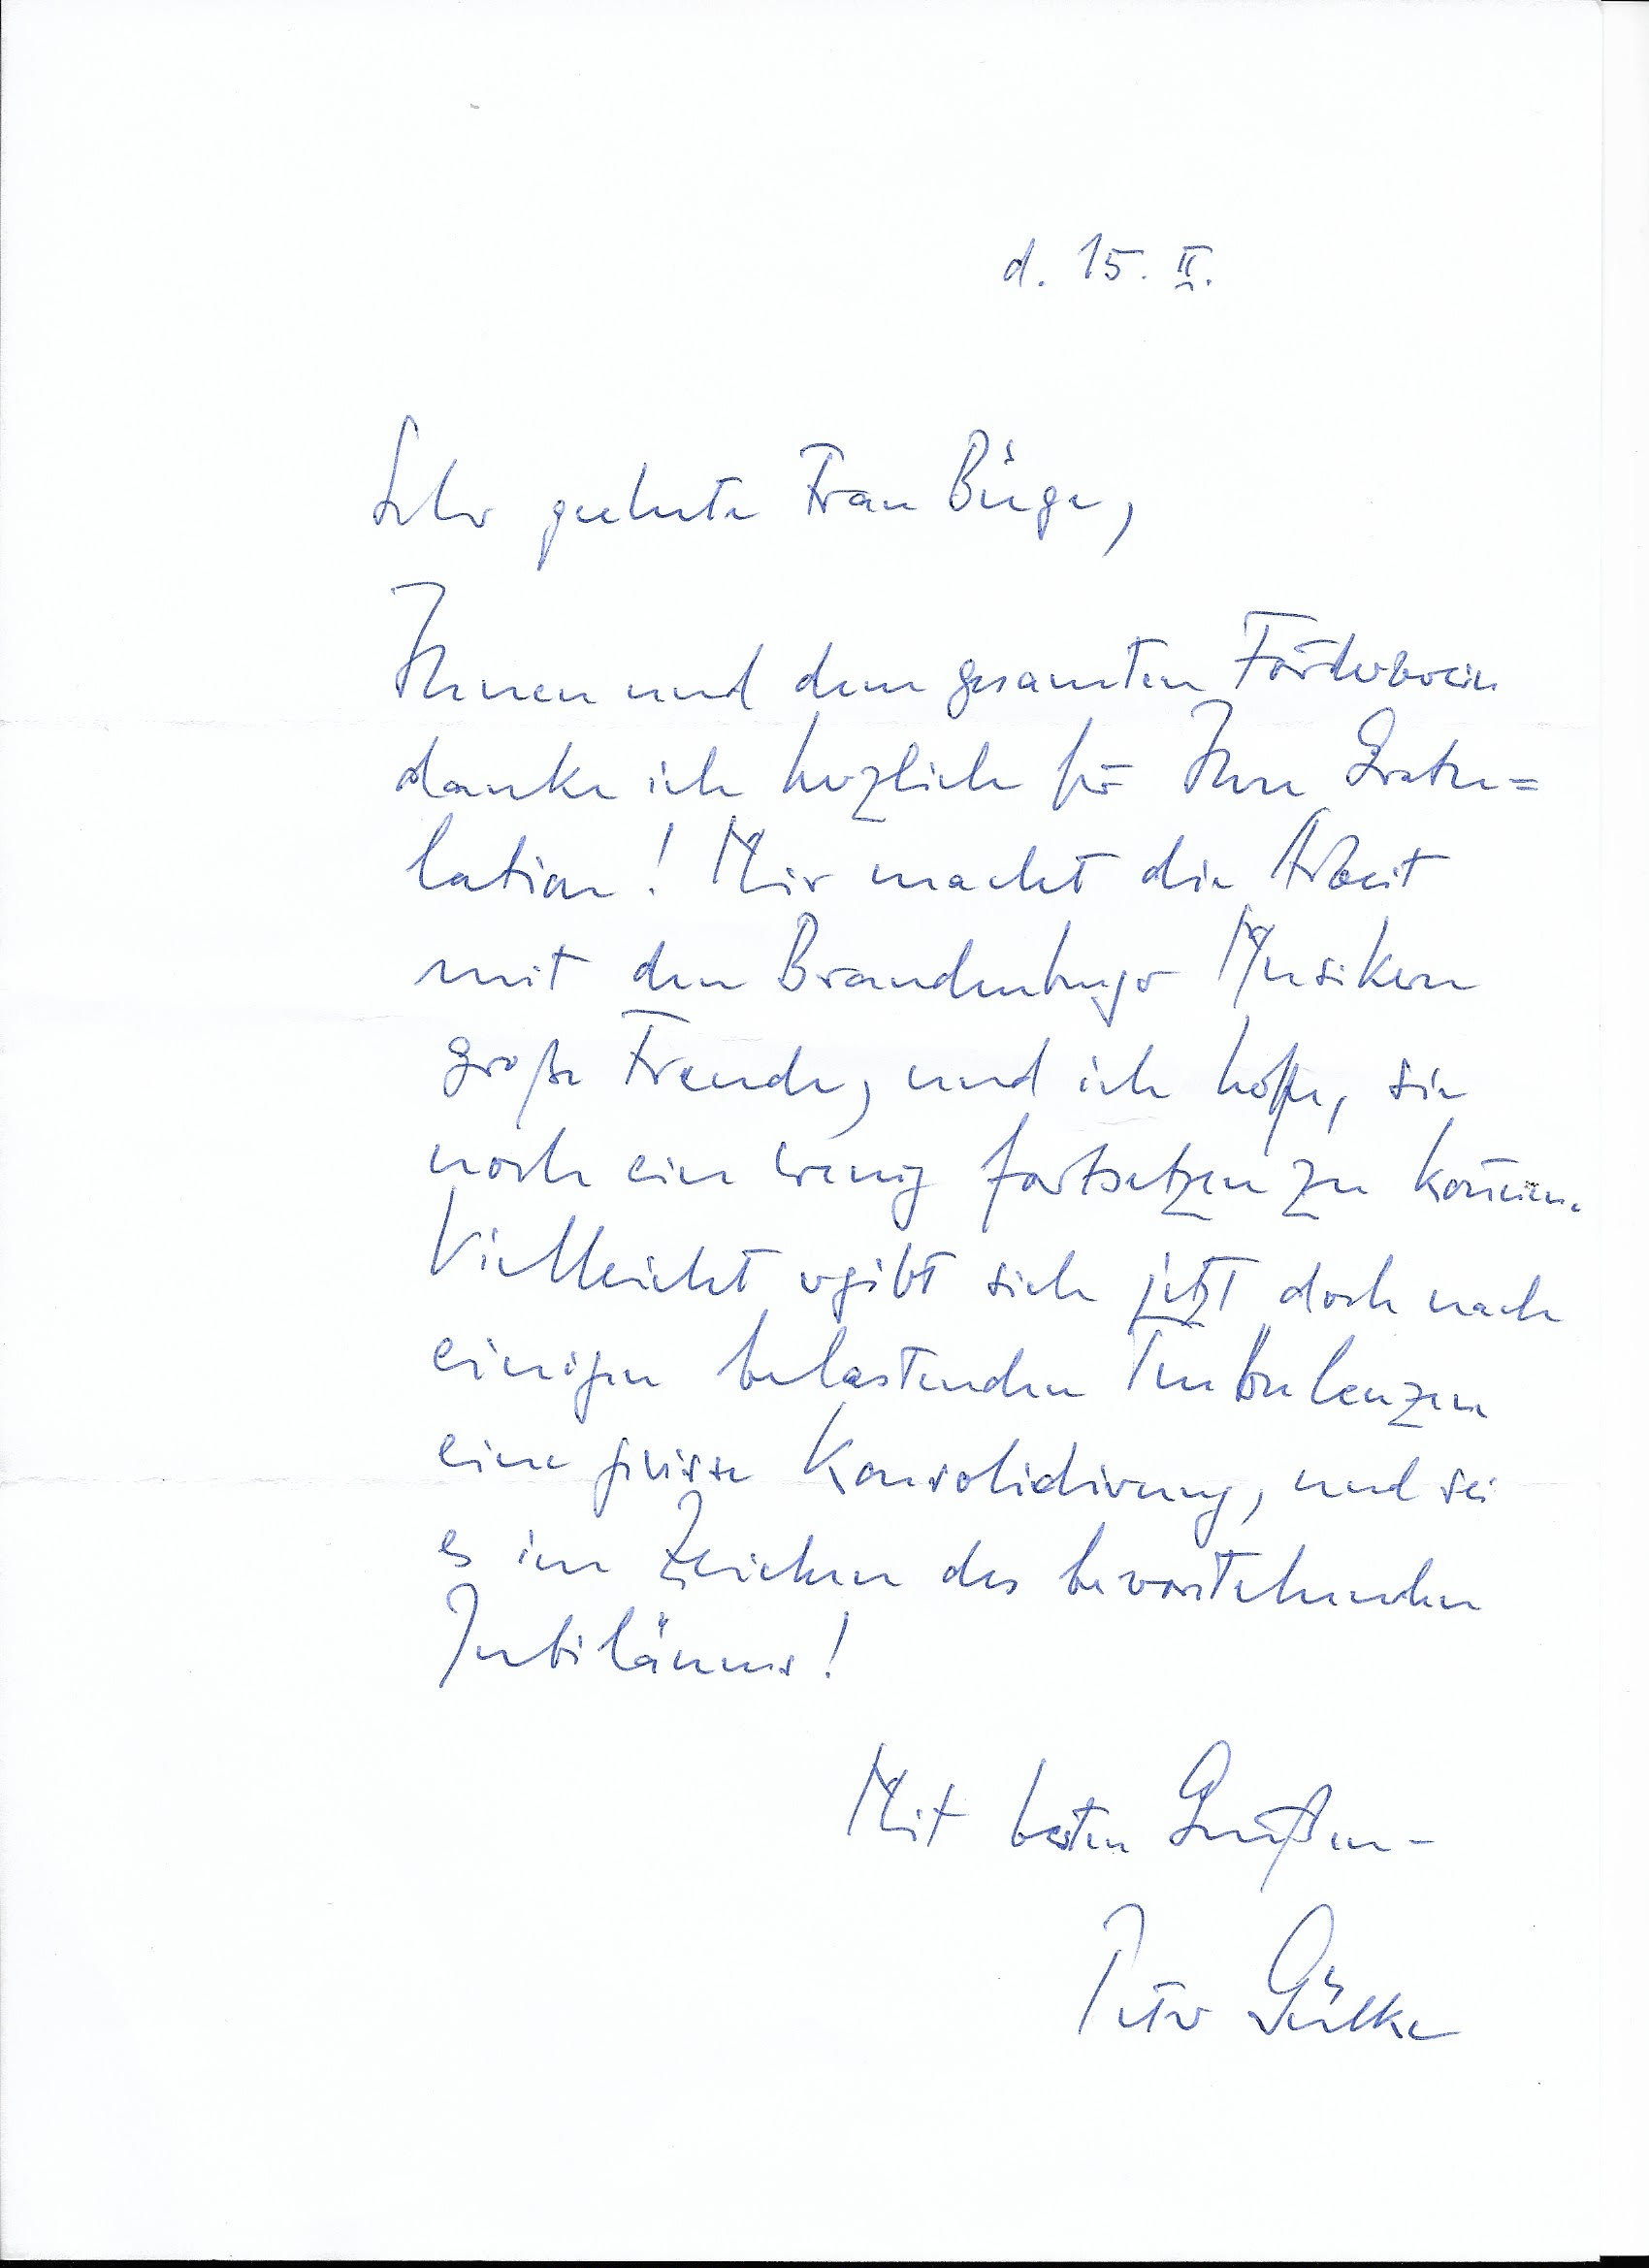 d. 15. II.
Sehr geehrte Frau Bürger,
Ihnen und dem gesamten Förderverein
danke ich herzlich für Ihre Gratu=
lation! Mir macht die Arbeit
mit den Brandenburger Musikern
große Freude, und ich hoffe, sie
noch ein wenig fortsetzen zu können.
Vielleicht ergibt sich jetzt doch nach
einigen belastenden Turbulenzen
eine gewisse Konsolidierung, und sei
es im Zeichen des bevorstehenden
Jubiläums!
Mit besten Grüßen –
Peter Gülke